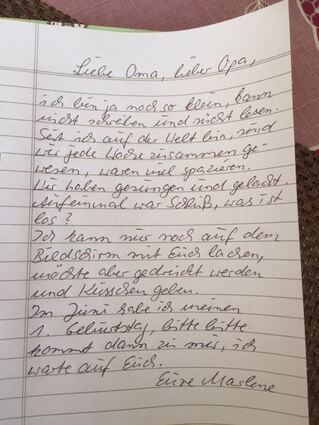 Liebe Oma, lieber Opa,
ich bin ja noch so klein, kann
nicht schreiben und nicht lesen.
Seit ich auf der Welt bin, sind
wir jede Woche zusammen ge-
wesen, waren viel spazieren.
Wir haben gesungen und gelacht.
Aufeinmal war Schluß, was ist
los?
Ich kann nur noch auf dem
Bildschirm mit Euch lachen,
möchte aber gedrückt werden
und Küsschen geben.
Im Juni habe ich meinen
1. Geburtstag, bitte bitte
kommt dann zu mir, ich
warte auf Euch.
Eure Marlene